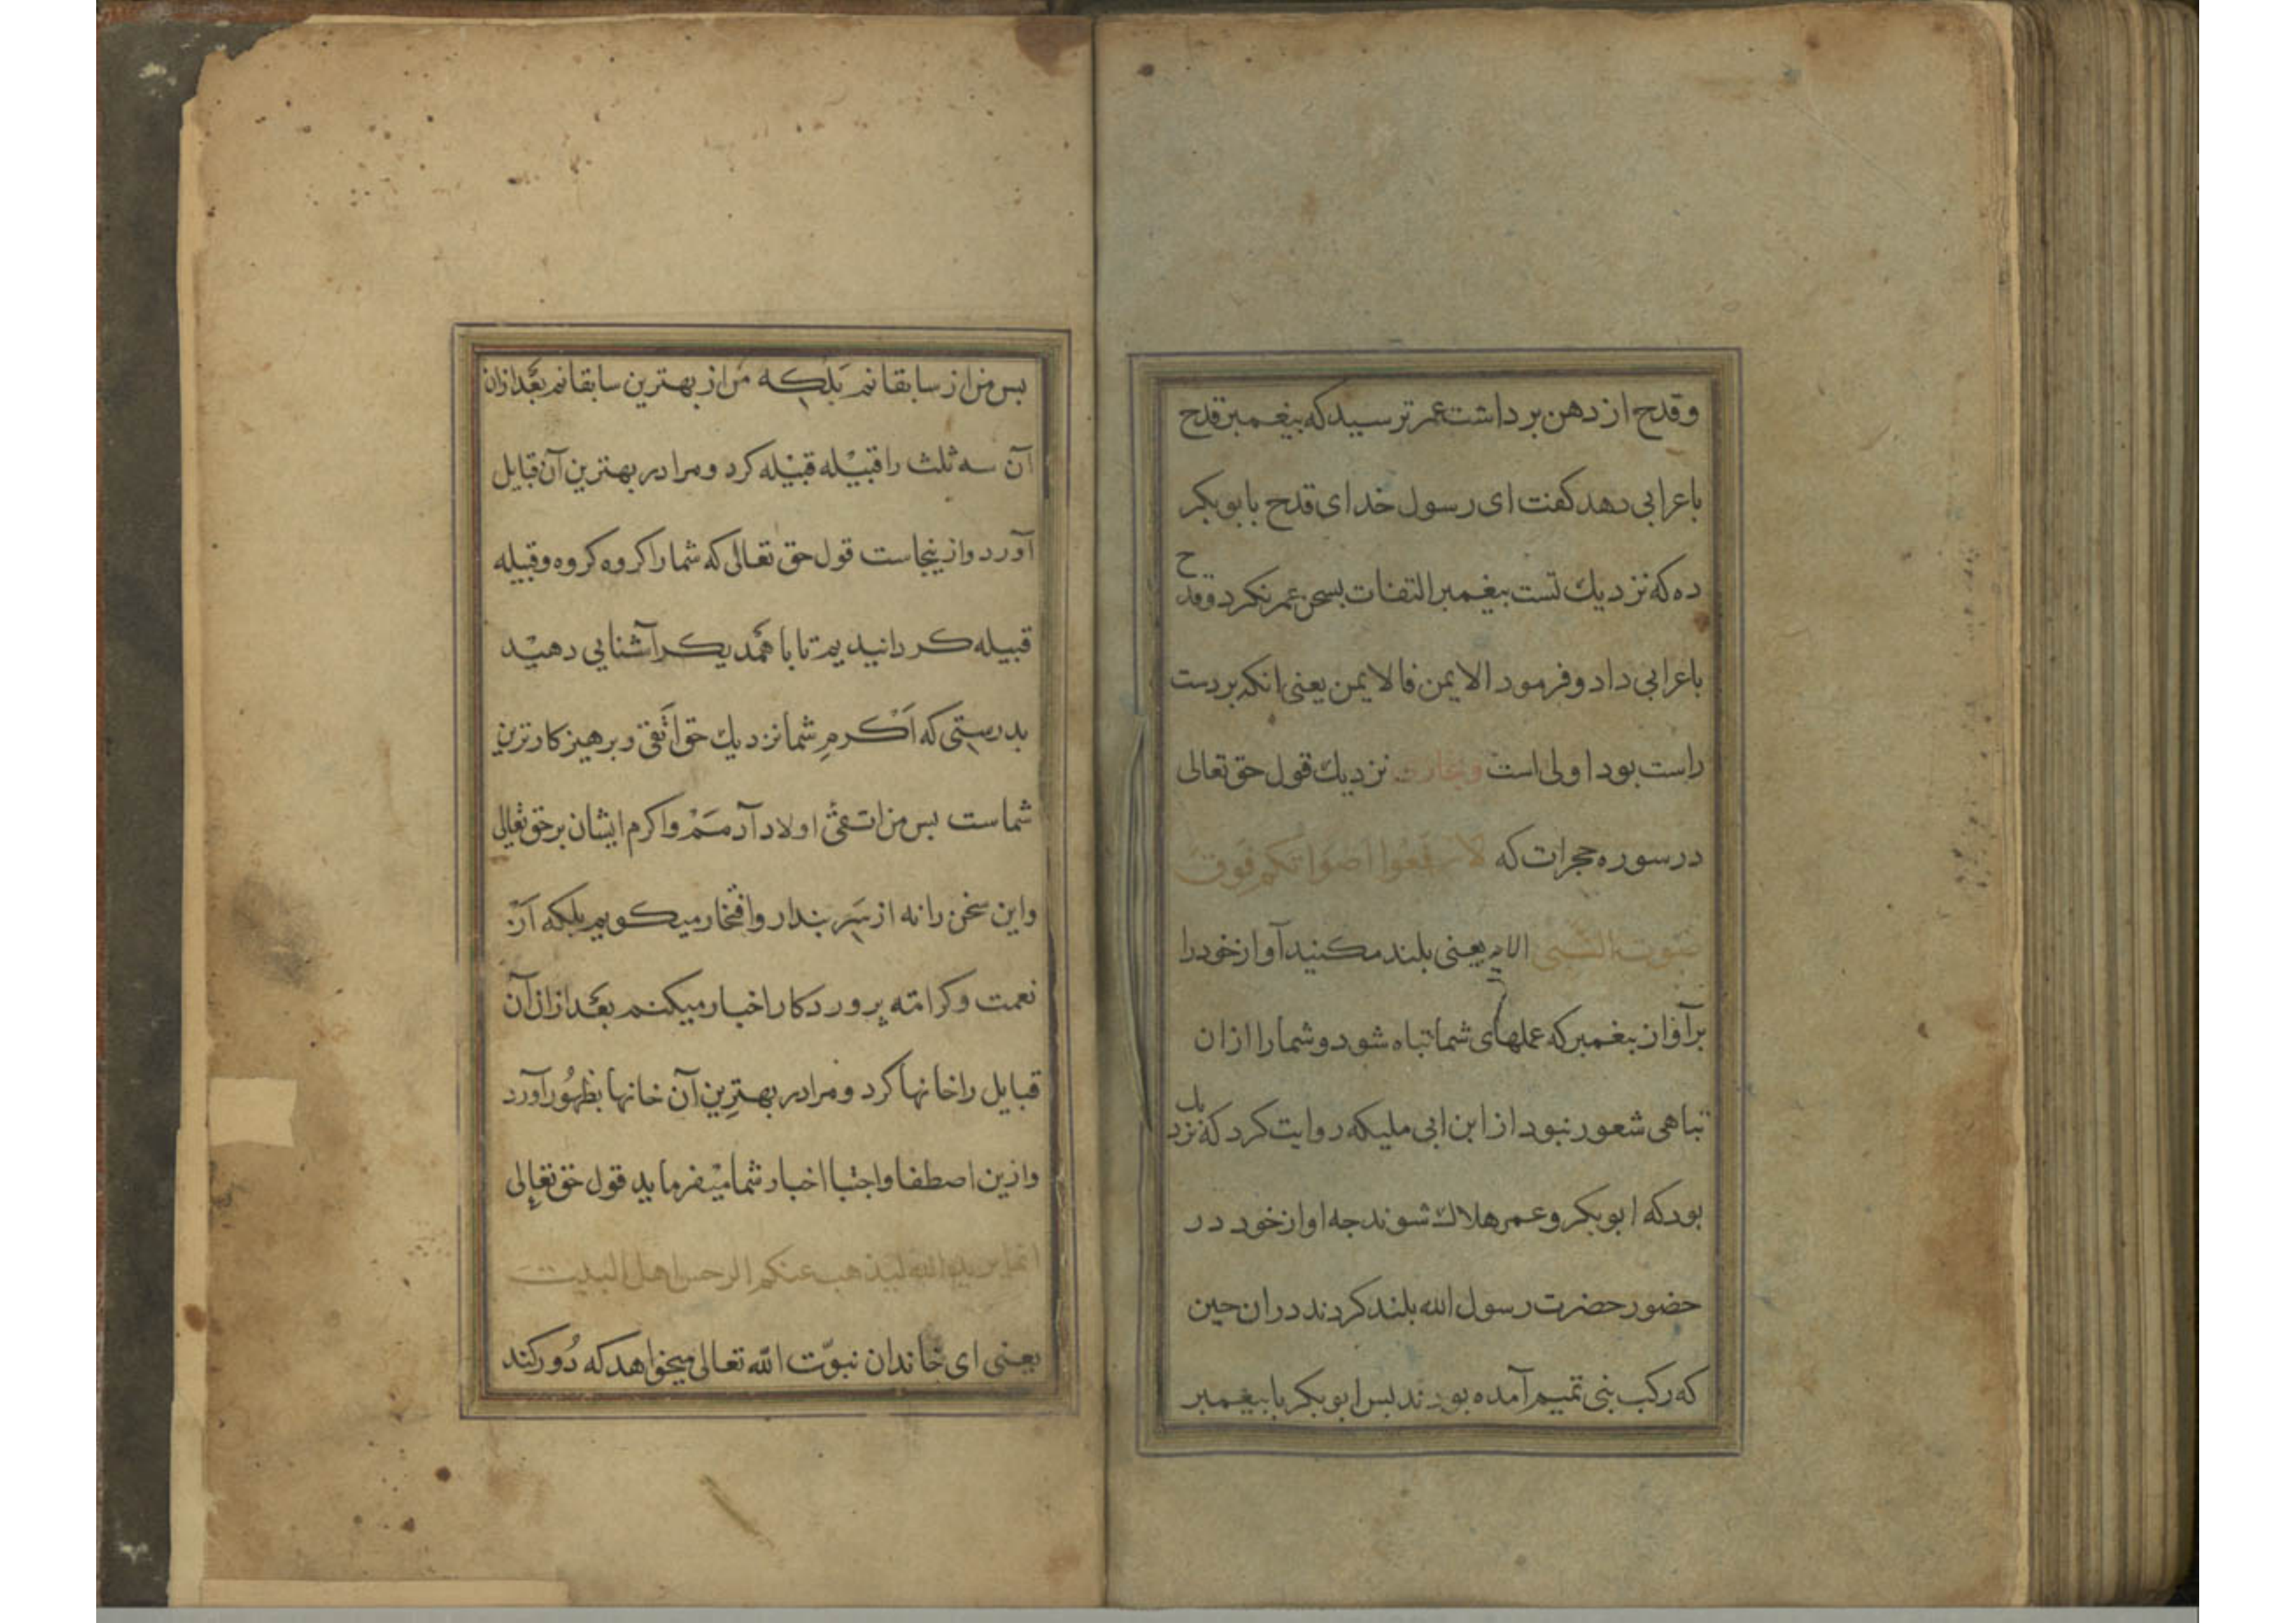 وقدح از دهن برداشت عمر ترسید که پیغمبر قدح
باعرابی دهد کفت ای رسول خدای قدح بابوبکر
ده که نزدیك تست پیغمبر التفات بسخن عمر نکرد وقدح
باعرابی داد وفرمود الایمن فالایمن یعنی انکه بر دست
راست بود اولی است نزدیك قول حق تعالی
در سوره حجرات که لا ترفعوا اصواتکم فوق
صوت النبی الایه یعنی بلند مکنید آواز خود را
بر آواز پیغمبر که عملهای شما تباه شود و شما را ازان
تباهی شعور نبود از ابن ابی ملیکه روایت کرد که نزدیك
بود که ابوبکر و عمر هلاك شوند جه اواز خود در
حضور حضرت رسول الله بلند کردند دران حین
که رکب بنی تمیم آمده بودند بس ابوبکر با بیغمبر
بس من از سابقانم بلکه من از بهترین سابقانم بعد ازان
آن سه ثلث را قبیله قبیله کرد ومرا در بهترین آن قبایل
آورد وازینجاست قول حق تعالی که شما را کروه کروه وقبیله
قبیله کردانیدیم تا با همدیکر آشنایی دهید
بدرستی که اکرم شما نزدیك حق اتقی وبرهیزکارترین
شماست بس من اتقی اولاد آدمم واکرم ایشان بر حق تعالی
واین سخن را نه از سر بندار وافتخار میکویم بلکه از
نعمت وکرامته پروردکار اخبار میکنم بعد ازان آن
قبایل را خانها کرد ومرا در بهترین آن خانها بظهور آورد
وازین اصطفا واجتبا اخبار شما میفرماید قول حق تعالی
انما یرید الله لیذهب عنکم الرجس اهل البیت
یعنی ای خاندان نبوّت الله تعالی میخواهد که دُور کند